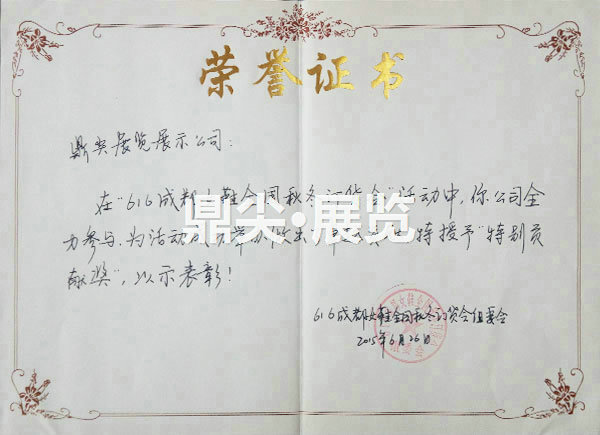 荣誉证书
鼎尖展览展示公司：
在"616成都女鞋全国秋冬订货会"活动中，你公司全
力参与，为活动成功举办 特授予"特别贡
献奖"，以示表彰！
鼎尖·展览
616成都女鞋全国秋冬订货会组委会
2015年6月26日